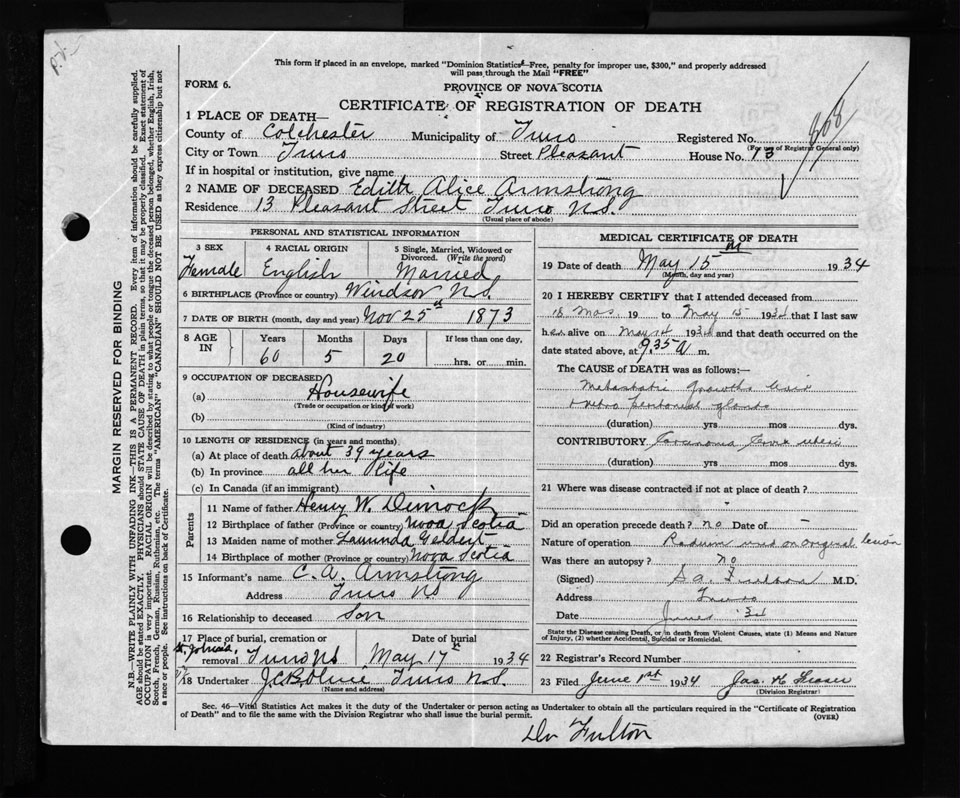 This form if placed in an envelope, marked "Dominion Statistics—Free, penalty for improper use, $300," and properly addressed
will pass through the Mail "FREE"
FORM 6.
PROVINCE OF NOVA SCOTIA
CERTIFICATE OF REGISTRATION OF DEATH
1 PLACE OF DEATH—
County of Colchester Municipality of Truro Registered No. 868
(For use of Registrar General only)
City or Town Truro Street Pleasant House No. 13
If in hospital or institution, give name
2 NAME OF DECEASED Edith Alice Armstrong
Residence 13 Pleasant Street Truro N.S.
(Usual place of abode)
PERSONAL AND STATISTICAL INFORMATION
3 SEX 4 RACIAL ORIGIN 5 Single, Married, Widowed or Divorced. (Write the word)
Female English Married
6 BIRTHPLACE (Province or country) Windsor N.S.
7 DATE OF BIRTH (month, day and year) Nov 25th 1873
8 AGE IN Years Months Days If less than one day,
60 5 20 hrs. or min.
9 OCCUPATION OF DECEASED
(a) Housewife
(Trade or occupation or kind of work)
(b)
(Kind of industry)
10 LENGTH OF RESIDENCE (in years and months)
(a) At place of death about 39 years
(b) In province all her life
(c) In Canada (if an immigrant)
Parents
11 Name of father Henry W. Dimock
12 Birthplace of father (Province or country) Nova Scotia
13 Maiden name of mother Geldert
14 Birthplace of mother (Province or country) Nova Scotia
15 Informant's name C. A. Armstrong
Address Truro NS
16 Relationship to deceased Son
17 Place of burial, cremation or removal Date of burial
Truro NS May 17th 1934
18 Undertaker Truro N.S.
(Name and address)
MEDICAL CERTIFICATE OF DEATH
19 Date of death May 15 1934
(Month, day and year)
20 I HEREBY CERTIFY that I attended deceased from
18 Mos. 19 to May 15 1934 that I last saw
her alive on May 14 1934 and that death occurred on the
date stated above, at 9.35 a m.
The CAUSE of DEATH was as follows:—
Metastatic growths
retro peritoneal glands
(duration) yrs mos dys.
CONTRIBUTORY Carcinoma Cervix uteri
(duration) yrs mos dys.
21 Where was disease contracted if not at place of death?
Did an operation precede death? no Date of —
Nature of operation Radium used on original lesion
Was there an autopsy? no
(Signed) Fulton M.D.
Address Truro
Date June 1 34
State the Disease causing Death, or in death from Violent Causes, state (1) Means and Nature
of Injury, (2) whether Accidental, Suicidal or Homicidal.
22 Registrar's Record Number
23 Filed June 1st 1934 Jas. H. Fraser
(Division Registrar)
Sec. 46—Vital Statistics Act makes it the duty of the Undertaker or person acting as Undertaker to obtain all the particulars required in the "Certificate of Registration
of Death" and to file the same with the Division Registrar who shall issue the burial permit.
(OVER)
Dr Fulton
MARGIN RESERVED FOR BINDING
N.B.—WRITE PLAINLY WITH UNFADING INK—THIS IS A PERMANENT RECORD. Every item of information should be carefully supplied.
AGE should be stated EXACTLY. PHYSICIANS should STATE CAUSE OF DEATH in plain terms, so that it may be properly classified. Exact statement of
OCCUPATION is very important. RACIAL ORIGIN will be described by stating to what people or tongue the deceased person belonged, whether English, Irish,
Scotch, French, German, Russian, Ruthenian, etc. The terms "AMERICAN" or "CANADIAN" SHOULD NOT BE USED as they express citizenship but not
a race or people. See instructions on back of Certificate.